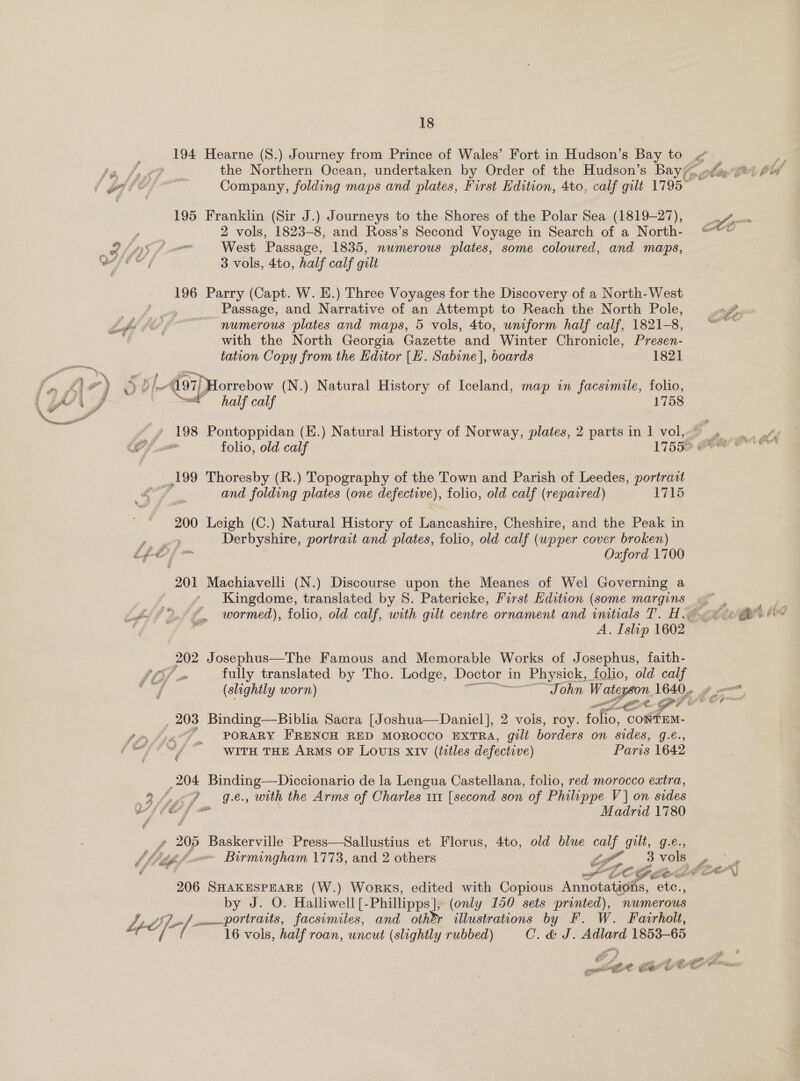 18
194 Hearne (S.) Journey from Prince of Wales' Fort in Hudson's Bay to
the Northern Ocean, undertaken by Order of the Hudson's Bay
Company, folding maps and plates, First Edition, 4to, calf gilt 1795
195 Franklin (Sir J.) Journeys to the Shores of the Polar Sea (1819–27),
2 vols, 1823–8, and Ross's Second Voyage in Search of a North-
West Passage, 1835, numerous plates, some coloured, and maps,
3 vols, 4to, half calf gilt
196 Parry (Capt. W. E.) Three Voyages for the Discovery of a North-West
Passage, and Narrative of an Attempt to Reach the North Pole,
numerous plates and maps, 5 vols, 4to, uniform half calf, 1821–8,
with the North Georgia Gazette and Winter Chronicle, Presen-
tation Copy from the Editor [E. Sabine], boards 1821
197 Horrebow (N.) Natural History of Iceland, map in facsimile, folio,
half calf 1758
198 Pontoppidan (E.) Natural History of Norway, plates, 2 parts in 1 vol,
folio, old calf 1755
199 Thoresby (R.) Topography of the Town and Parish of Leedes, portrait
and folding plates (one defective), folio, old calf (repaired) 1715
200 Leigh (C.) Natural History of Lancashire, Cheshire, and the Peak in
Derbyshire, portrait and plates, folio, old calf (upper cover broken)
Oxford 1700
201 Machiavelli (N.) Discourse upon the Meanes of Wel Governing a
Kingdome, translated by S. Patericke, First Edition (some margins
wormed), folio, old calf, with gilt centre ornament and initials T. H.
A. Islip 1602
202 Josephus—The Famous and Memorable Works of Josephus, faith-
fully translated by Tho. Lodge, Doctor in Physick, folio, old calf
(slightly worn) John Waterson 1640
203 Binding—Biblia Sacra [Joshua—Daniel], 2 vols, roy. folio, CONTEM-
PORARY FRENCH RED MOROCCO EXTRA, gilt borders on sides, g.e.,
WITH THE ARMS OF LOUIS XIV (titles defective) Paris 1642
204 Binding—Diccionario de la Lengua Castellana, folio, red morocco extra,
g.e., with the Arms of Charles III [second son of Philippe V] on sides
Madrid 1780
205 Baskerville Press—Sallustius et Florus, 4to, old blue calf gilt, g.e.,
Birmingham 1773, and 2 others 3 vols
206 SHAKESPEARE (W.) WORKS, edited with Copious Annotations, etc.,
by J. O. Halliwell [-Phillipps], (only 150 sets printed), numerous
portraits, facsimiles, and other illustrations by F. W. Fairholt,
16 vols, half roan, uncut (slightly rubbed) C. & J. Adlard 1853–65